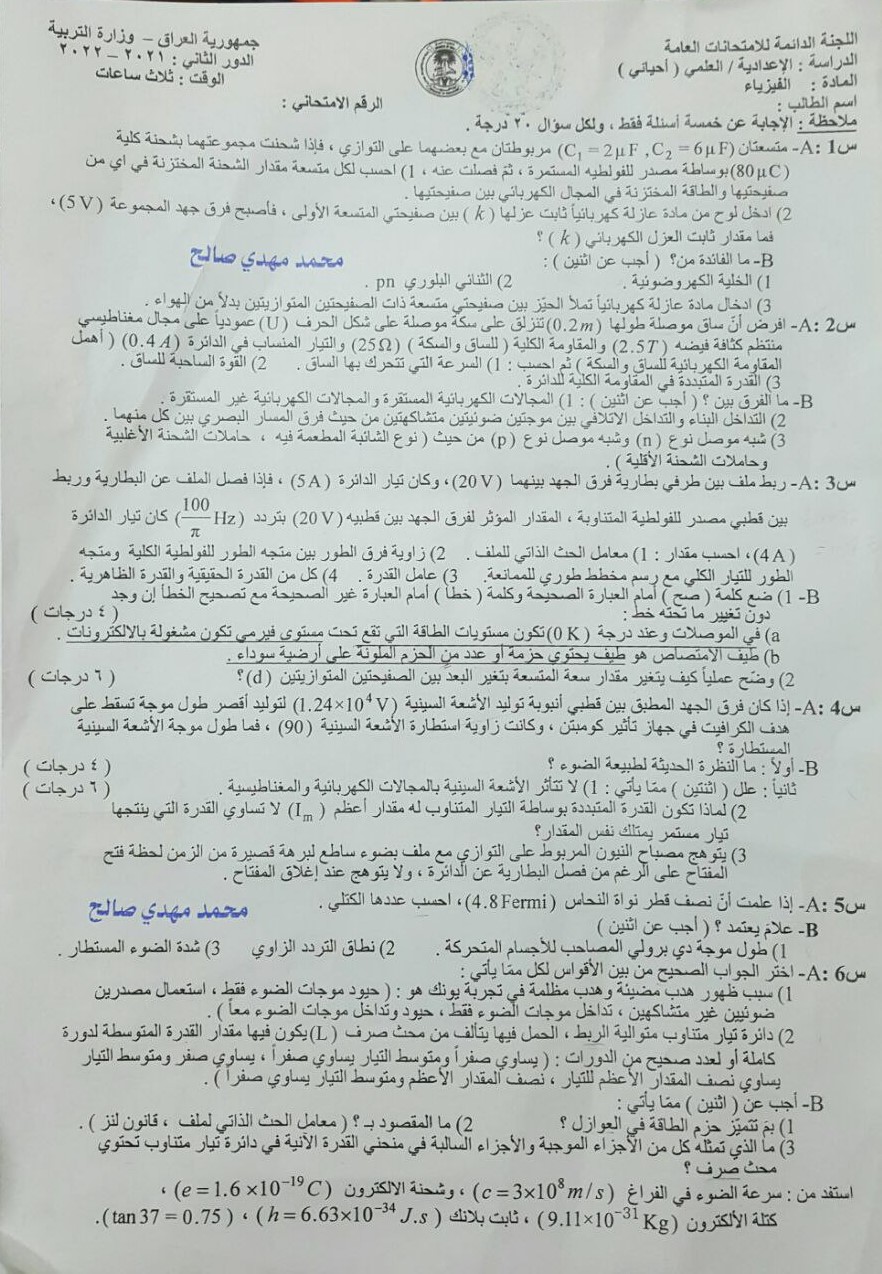 اللجنة الدائمة للامتحانات العامة
الدراسة : الإعدادية / العلمي ( أحيائي )
المادة : الفيزياء
اسم الطالب :
جمهورية العراق – وزارة التربية
الدور الثاني : ٢٠٢١ – ٢٠٢٢
الوقت : ثلاث ساعات
الرقم الامتحاني :
ملاحظة : الإجابة عن خمسة أسئلة فقط ، ولكل سؤال ٢٠ درجة .
س1 :A- متسعتان (C₁ = 2μF , C₂ = 6μF) مربوطتان مع بعضهما على التوازي ، فإذا شحنت مجموعتهما بشحنة كلية
(80μC) بوساطة مصدر للفولطيه المستمرة ، ثم فصلت عنه ، 1) احسب لكل متسعة مقدار الشحنة المختزنة في اي من
صفيحتيها والطاقة المختزنة في المجال الكهربائي بين صفيحتيها .
2) ادخل لوح من مادة عازلة كهربائياً ثابت عزلها ( k ) بين صفيحتي المتسعة الأولى ، فأصبح فرق جهد المجموعة (5V) ،
فما مقدار ثابت العزل الكهربائي ( k ) ؟
محمد مهدي صالح
B- ما الفائدة من؟ ( أجب عن اثنين ) :
1) الخلية الكهروضوئية . 2) الثنائي البلوري pn .
3) ادخال مادة عازلة كهربائياً تملأ الحيّز بين صفيحتي متسعة ذات الصفيحتين المتوازيتين بدلاً من الهواء .
س2 :A- افرض أنّ ساق موصلة طولها (0.2m) تنزلق على سكة موصلة على شكل الحرف (U) عمودياً على مجال مغناطيسي
منتظم كثافة فيضه (2.5T) والمقاومة الكلية ( للساق والسكة ) (25Ω) والتيار المنساب في الدائرة (0.4A) ( أهمل
المقاومة الكهربائية للساق والسكة ) ثم احسب : 1) السرعة التي تتحرك بها الساق . 2) القوة الساحبة للساق .
3) القدرة المتبددة في المقاومة الكلية للدائرة .
B- ما الفرق بين ؟ ( أجب عن اثنين ) : 1) المجالات الكهربائية المستقرة والمجالات الكهربائية غير المستقرة .
2) التداخل البناء والتداخل الاتلافي بين موجتين ضوئيتين متشاكهتين من حيث فرق المسار البصري بين كل منهما .
3) شبه موصل نوع (n) وشبه موصل نوع (p) من حيث ( نوع الشائبة المطعمة فيه ، حاملات الشحنة الأغلبية
وحاملات الشحنة الأقلية ) .
س3 :A- ربط ملف بين طرفي بطارية فرق الجهد بينهما (20V) ، وكان تيار الدائرة (5A) ، فإذا فصل الملف عن البطارية وربط
بين قطبي مصدر للفولطية المتناوبة ، المقدار المؤثر لفرق الجهد بين قطبيه (20V) بتردد (100/π Hz) كان تيار الدائرة
(4A) ، احسب مقدار : 1) معامل الحث الذاتي للملف . 2) زاوية فرق الطور بين متجه الطور للفولطية الكلية ومتجه
الطور للتيار الكلي مع رسم مخطط طوري للممانعة. 3) عامل القدرة . 4) كل من القدرة الحقيقية والقدرة الظاهرية .
B- 1) ضع كلمة ( صح ) أمام العبارة الصحيحة وكلمة ( خطأ ) أمام العبارة غير الصحيحة مع تصحيح الخطأ إن وجد
دون تغيير ما تحته خط : ( ٤ درجات )
a) في الموصلات وعند درجة (0 K) تكون مستويات الطاقة التي تقع تحت مستوى فيرمي تكون مشغولة بالالكترونات .
b) طيف الامتصاص هو طيف يحتوي حزمة أو عدد من الحزم الملونة على أرضية سوداء .
2) وضّح عملياً كيف يتغير مقدار سعة المتسعة بتغير البعد بين الصفيحتين المتوازيتين (d) ؟ ( ٦ درجات )
س4 :A- إذا كان فرق الجهد المطبق بين قطبي أنبوبة توليد الأشعة السينية (1.24×10⁴ V) لتوليد أقصر طول موجة تسقط على
هدف الكرافيت في جهاز تأثير كومبتن ، وكانت زاوية استطارة الأشعة السينية (90) ، فما طول موجة الأشعة السينية
المستطارة ؟
B- أولاً : ما النظرة الحديثة لطبيعة الضوء ؟ ( ٤ درجات )
ثانياً : علل ( اثنتين ) ممّا يأتي : 1) لا تتأثر الأشعة السينية بالمجالات الكهربائية والمغناطيسية . ( ٦ درجات )
2) لماذا تكون القدرة المتبددة بوساطة التيار المتناوب له مقدار أعظم ( Iₘ ) لا تساوي القدرة التي ينتجها
تيار مستمر يمتلك نفس المقدار؟
3) يتوهج مصباح النيون المربوط على التوازي مع ملف بضوء ساطع لبرهة قصيرة من الزمن لحظة فتح
المفتاح على الرغم من فصل البطارية عن الدائرة ، ولا يتوهج عند إغلاق المفتاح .
س5 :A- إذا علمت أنّ نصف قطر نواة النحاس (4.8Fermi) ، احسب عددها الكتلي .
محمد مهدي صالح
B- علامَ يعتمد ؟ ( أجب عن اثنين )
1) طول موجة دي برولي المصاحب للأجسام المتحركة . 2) نطاق التردد الزاوي 3) شدة الضوء المستطار .
س6 :A- اختر الجواب الصحيح من بين الأقواس لكل ممّا يأتي :
1) سبب ظهور هدب مضيئة وهدب مظلمة في تجربة يونك هو : ( حيود موجات الضوء فقط ، استعمال مصدرين
ضوئيين غير متشاكهين ، تداخل موجات الضوء فقط ، حيود وتداخل موجات الضوء معاً ) .
2) دائرة تيار متناوب متوالية الربط ، الحمل فيها يتألف من محث صرف (L) يكون فيها مقدار القدرة المتوسطة لدورة
كاملة أو لعدد صحيح من الدورات : ( يساوي صفراً ومتوسط التيار يساوي صفراً ، يساوي صفر ومتوسط التيار
يساوي نصف المقدار الأعظم للتيار ، نصف المقدار الأعظم ومتوسط التيار يساوي صفراً ) .
B- أجب عن ( اثنين ) ممّا يأتي :
1) بمَ تتميّز حزم الطاقة في العوازل ؟ 2) ما المقصود بـ ؟ ( معامل الحث الذاتي لملف ، قانون لنز ) .
3) ما الذي تمثله كل من الأجزاء الموجبة والأجزاء السالبة في منحني القدرة الآنية في دائرة تيار متناوب تحتوي
محث صرف ؟
استفد من : سرعة الضوء في الفراغ (c = 3×10⁸ m/s) ، وشحنة الالكترون (e = 1.6×10⁻¹⁹ C) ،
كتلة الألكترون (9.11×10⁻³¹ Kg) ، ثابت بلانك (h = 6.63×10⁻³⁴ J.s) ، (tan 37 = 0.75) .